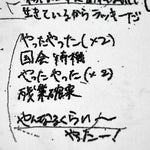 生きているからラッキーだ
やったやった(×2)
国会待機
やったやった(×2)
残業確実
やんなるくらい
やったー!